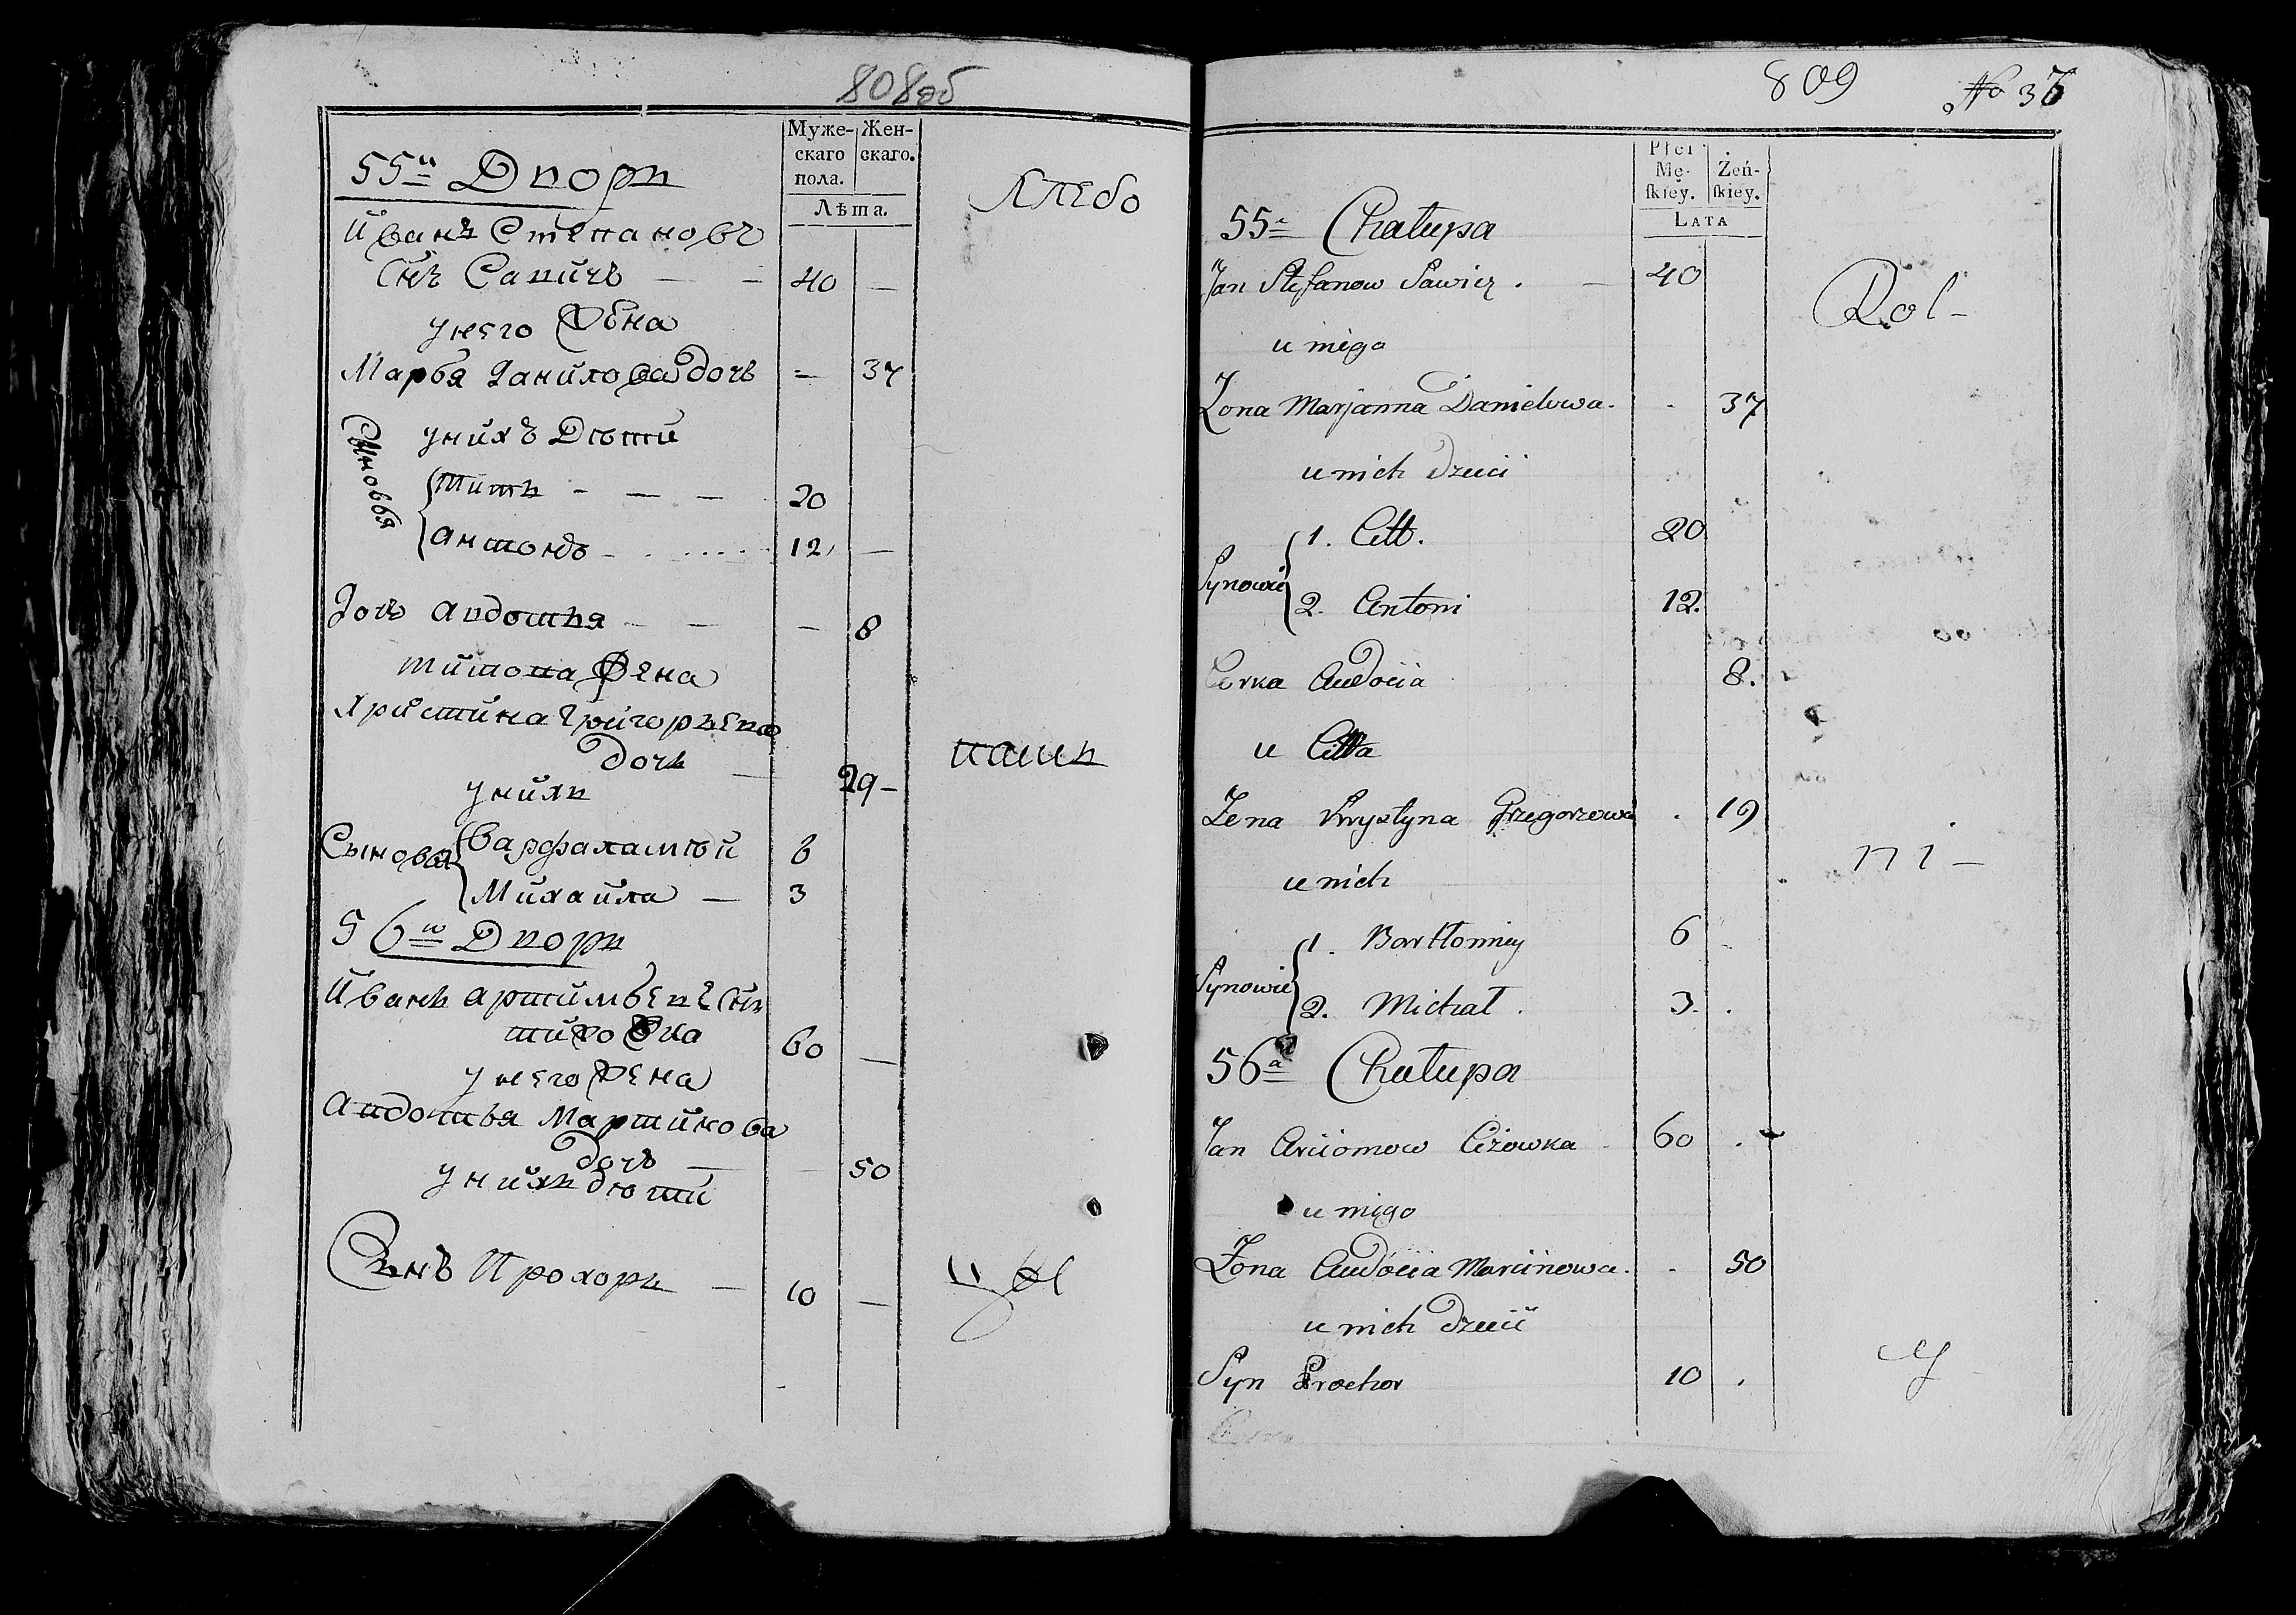 808об
Муже- Жен-
скаго скаго.
пола.
Лѣта.
55й Дворъ
Хлебо
Иванъ Степановъ
Снъ Савичъ — — 40 —
у него Жена
Марья Данилова дочь = 37
у нихъ Дѣти
Сыновья
Титъ - — — 20
Антонъ - . . . . . . 12, —
Дочь Авдотья — — — 8
Титова Жена
Христина Григорьева
дочь — 29 —
паш
у нихъ
Сыновья
Варфаламѣй 6
Михайла — 3
56й Дворъ
Иванъ Артимьевъ Снъ
60 —
у него Жена
Авдотья Мартинова
дочь — 50
у нихъ дѣти
Сынъ Прохоръ — 10 —
809 № 36
Płci
Mę- Żeń-
skiey. skiey.
LATA
55a Chałupa
Jan Stefanow Sawicz . — 40
Rol-
u niego
Żona Marjanna Danielowa. - 37
u nich Dzieci
Synowie
1. Citt. 20
2. Antoni 12.
Corka Audocia 8.
u Citta
Żena Krystyna Grzegorzowa . 19
ni —
u nich
Synowie
1. Bartłomiey 6
2. Michał . 3. .
56a Chałupa
Jan Arciomow Ciżowka 60 .
u niego
Żona Audocia Marcinowa. - 50
u nich Dzieci
Syn Prochor 10 .